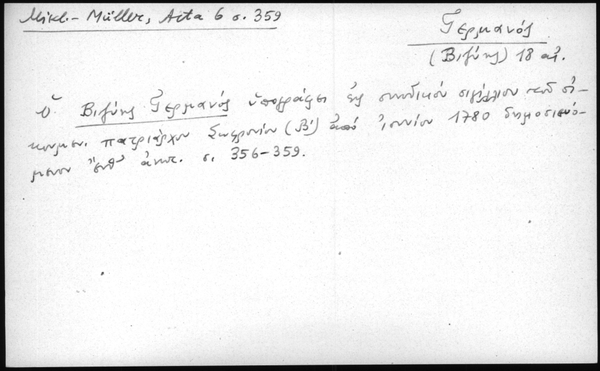 Mikl.- Müller, Acta 6 σ. 359
Γερμανός
(Βιζύης) 18 αἰ.
ὁ Βιζύης Γερμανός ὑπογράφει εἰς συνοδικόν σιγίλλιον τοῦ οἰ-
κουμεν. πατριάρχου Σωφρονίου (Β΄) ἀπό Ἰουνίου 1780 δημοσιευό-
μενον ἔνθ᾽ ἀνωτ. σ. 356-359.